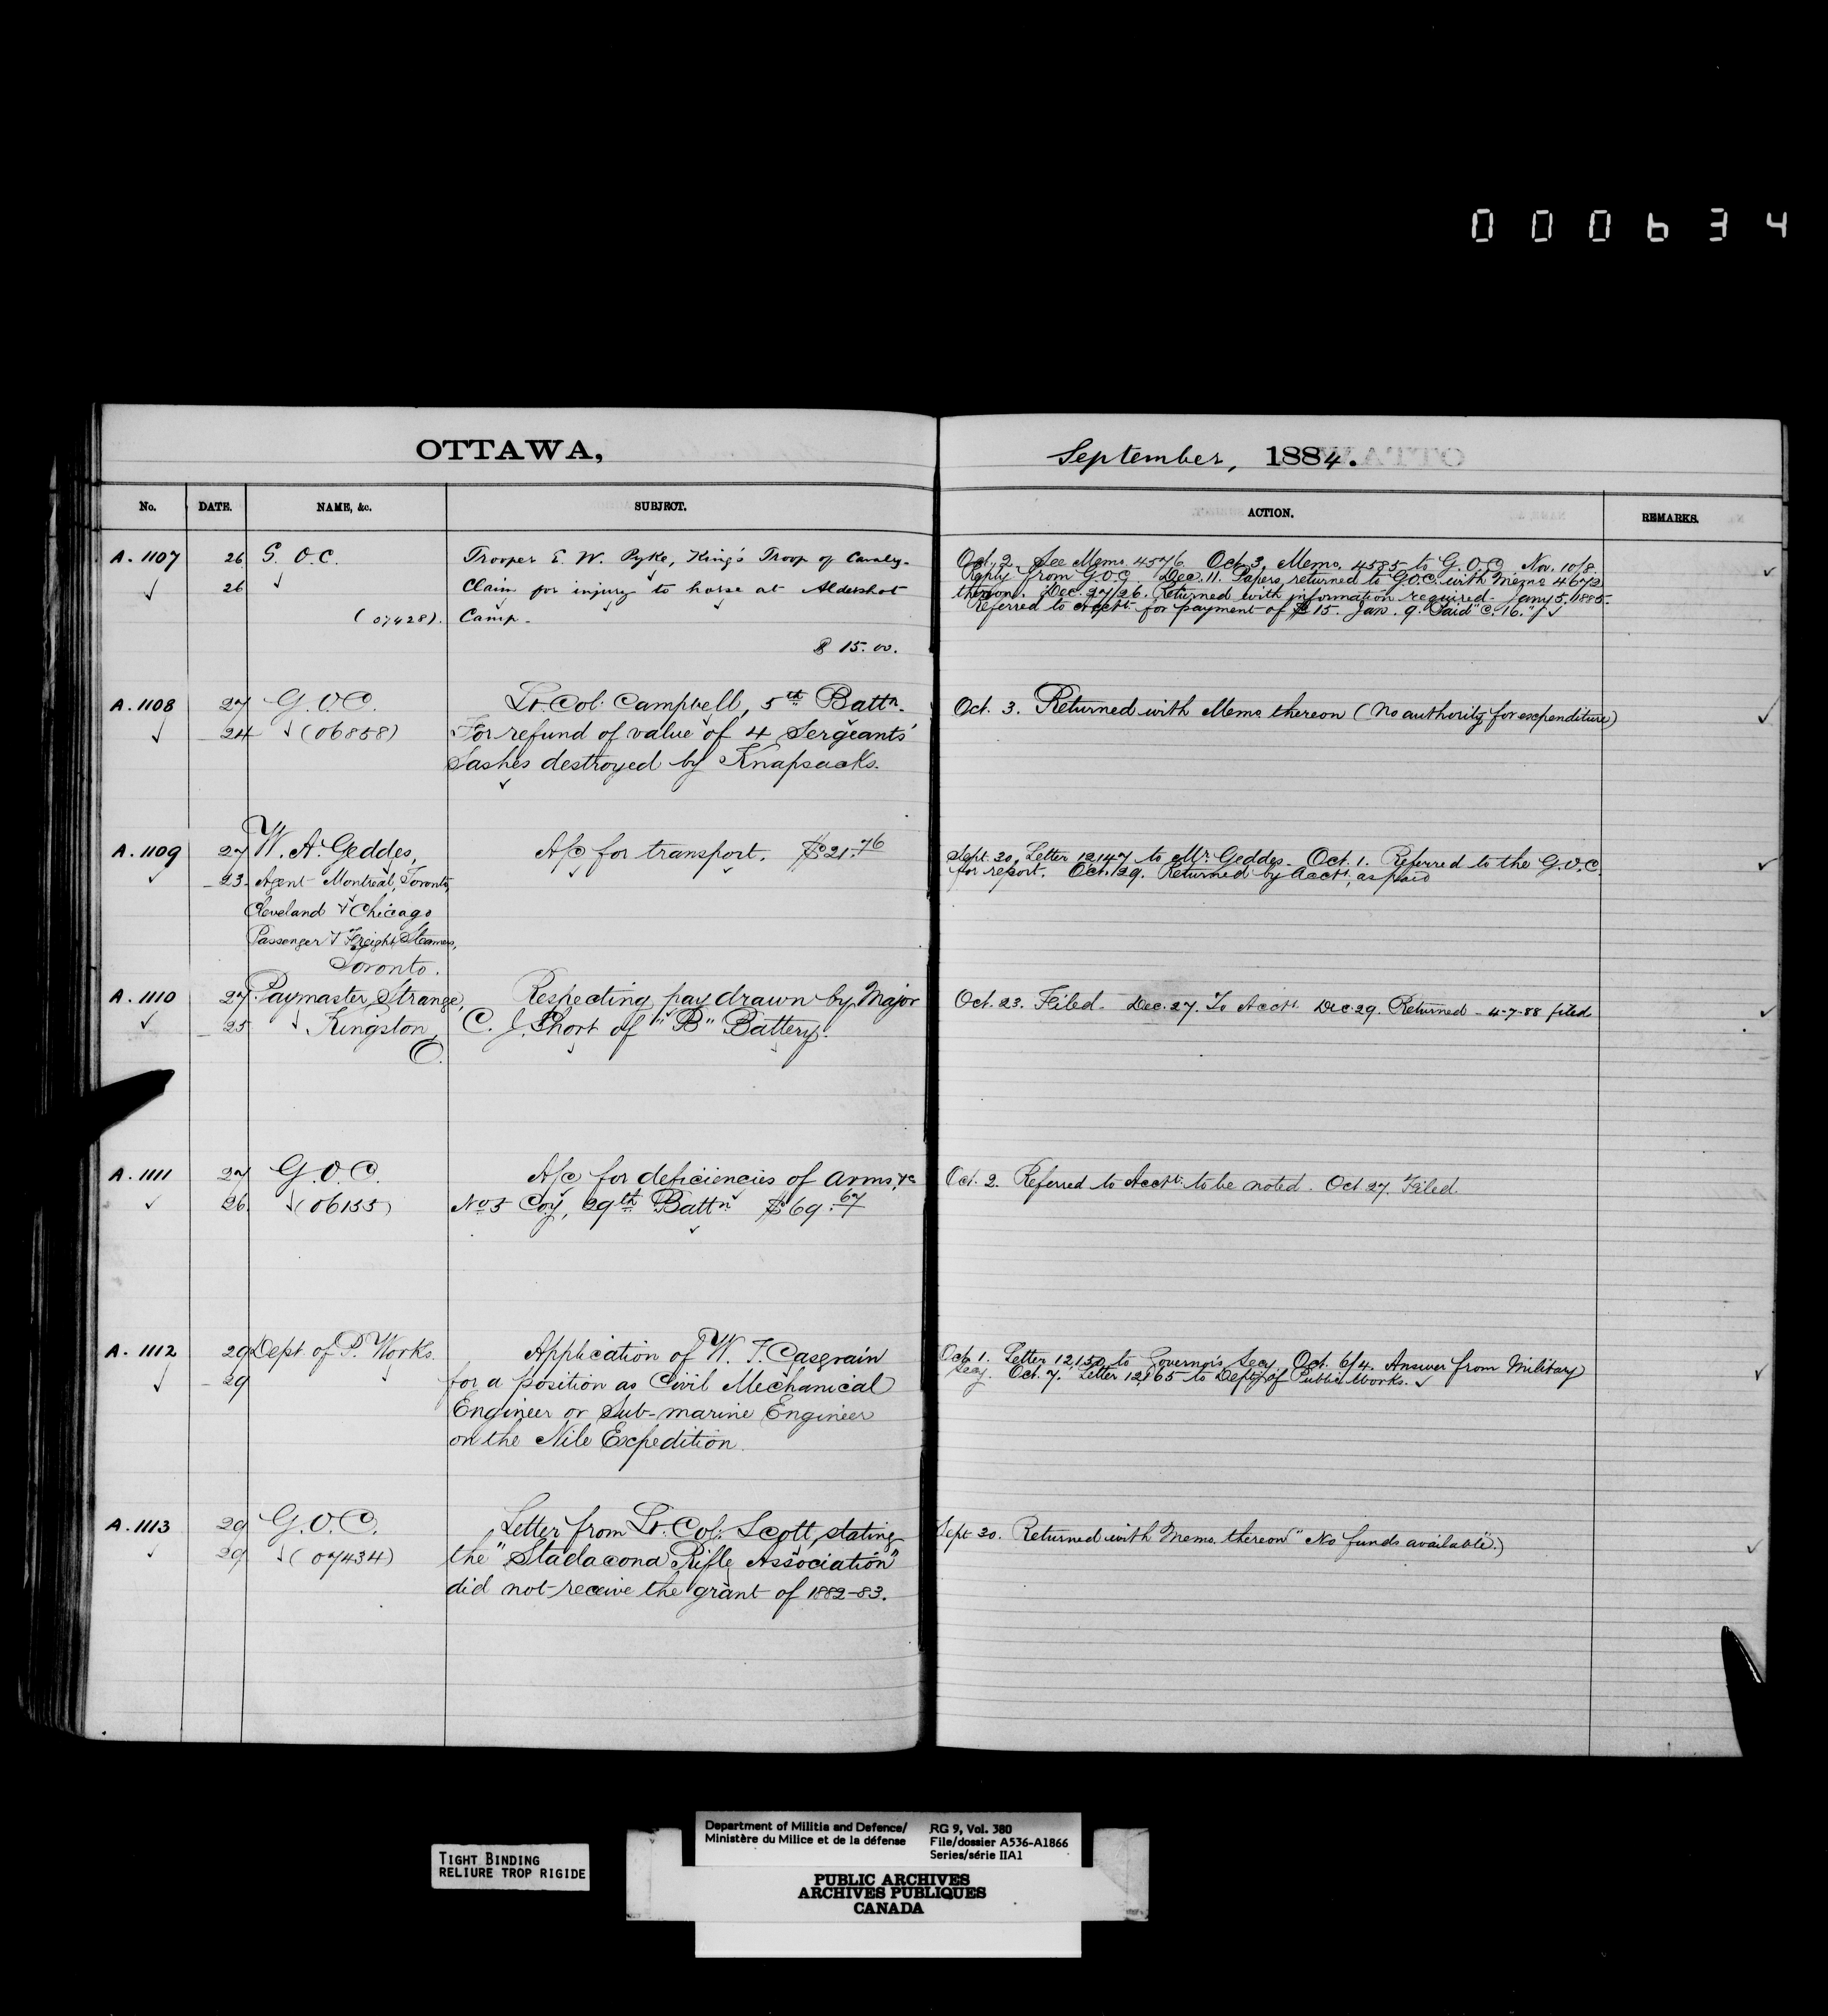 000634
OTTAWA,
September, 1884.
No.
DATE.
NAME, &c.
SUBJECT.
ACTION.
REMARKS.
A. 1107
26
26
G. O. C.
(07428).
Trooper E. W. Pyke, King's Troop of Cavalry.
Claim for injury to horse at Aldershot
Camp.
$ 15.00.
Oct. 2. See Memo. 4576. Oct. 3, Memo. 4585 to G.O.C. Nov. 10/8.
Reply from G.O.C. Dec. 11. Papers returned to G.O.C. with memo 4672
thereon. Dec. 27/26. Returned with information required. Jany 5, 1885.
Referred to Acct. for payment of $15. Jan. 9. Paid "C. 16."
A. 1108
27
24
G.O.C.
(06858)
Lt. Col. Campbell, 5th Battn.
For refund of value of 4 Sergeants'
Sashes destroyed by Knapsacks.
Oct. 3. Returned with Memo thereon (No authority for expenditure)
A. 1109
27
23
W. A. Geddes,
Agent Montreal, Toronto,
Cleveland & Chicago
Passenger & Freight Steamers,
Toronto.
A/c for transport. $21.76
Sept. 30, Letter 12147 to Mr. Geddes. Oct. 1. Referred to the G.O.C.
for report. Oct. 29. Returned by Acct., as paid
A. 1110
27
25
Paymaster Strange,
Kingston,
O.
Respecting pay drawn by Major
C. J. Short of "B" Battery.
Oct. 23. Filed. Dec. 27. To Acct. Dec 29. Returned - 4-7-88 filed
A. 1111
27
26
G.O.C.
(06155)
A/c for deficiencies of arms, &c
No 5 Coy, 29th Battn $69.67
Oct. 2. Referred to Acct. to be noted. Oct. 27. Filed.
A. 1112
29
29
Dept. of P. Works.
Application of W. F. Casgrain
for a position as Civil Mechanical
Engineer or Sub-marine Engineer
on the Nile Expedition.
Oct. 1. Letter 12,150 to Governor's Secy. Oct. 6/4. Answer from Military
Secy. Oct. 7. Letter 12,165 to Dept. of Public Works.
A. 1113
29
29
G.O.C.
(07434)
Letter from Lt. Col. Scott, stating
the "Stadacona Rifle Association"
did not receive the grant of 1882-83.
Sept 30. Returned with Memo. thereon "No funds available".)
TIGHT BINDING
RELIURE TROP RIGIDE
Department of Militia and Defence/
Ministère du Milice et de la défense
RG 9, Vol. 380
File/dossier A536-A1866
Series/série IIA1
PUBLIC ARCHIVES
ARCHIVES PUBLIQUES
CANADA